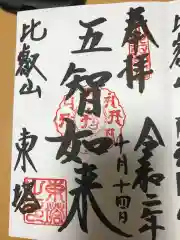 奉拝
令和二年
十月十四日
五智如来
比叡山
東塔
比叡山